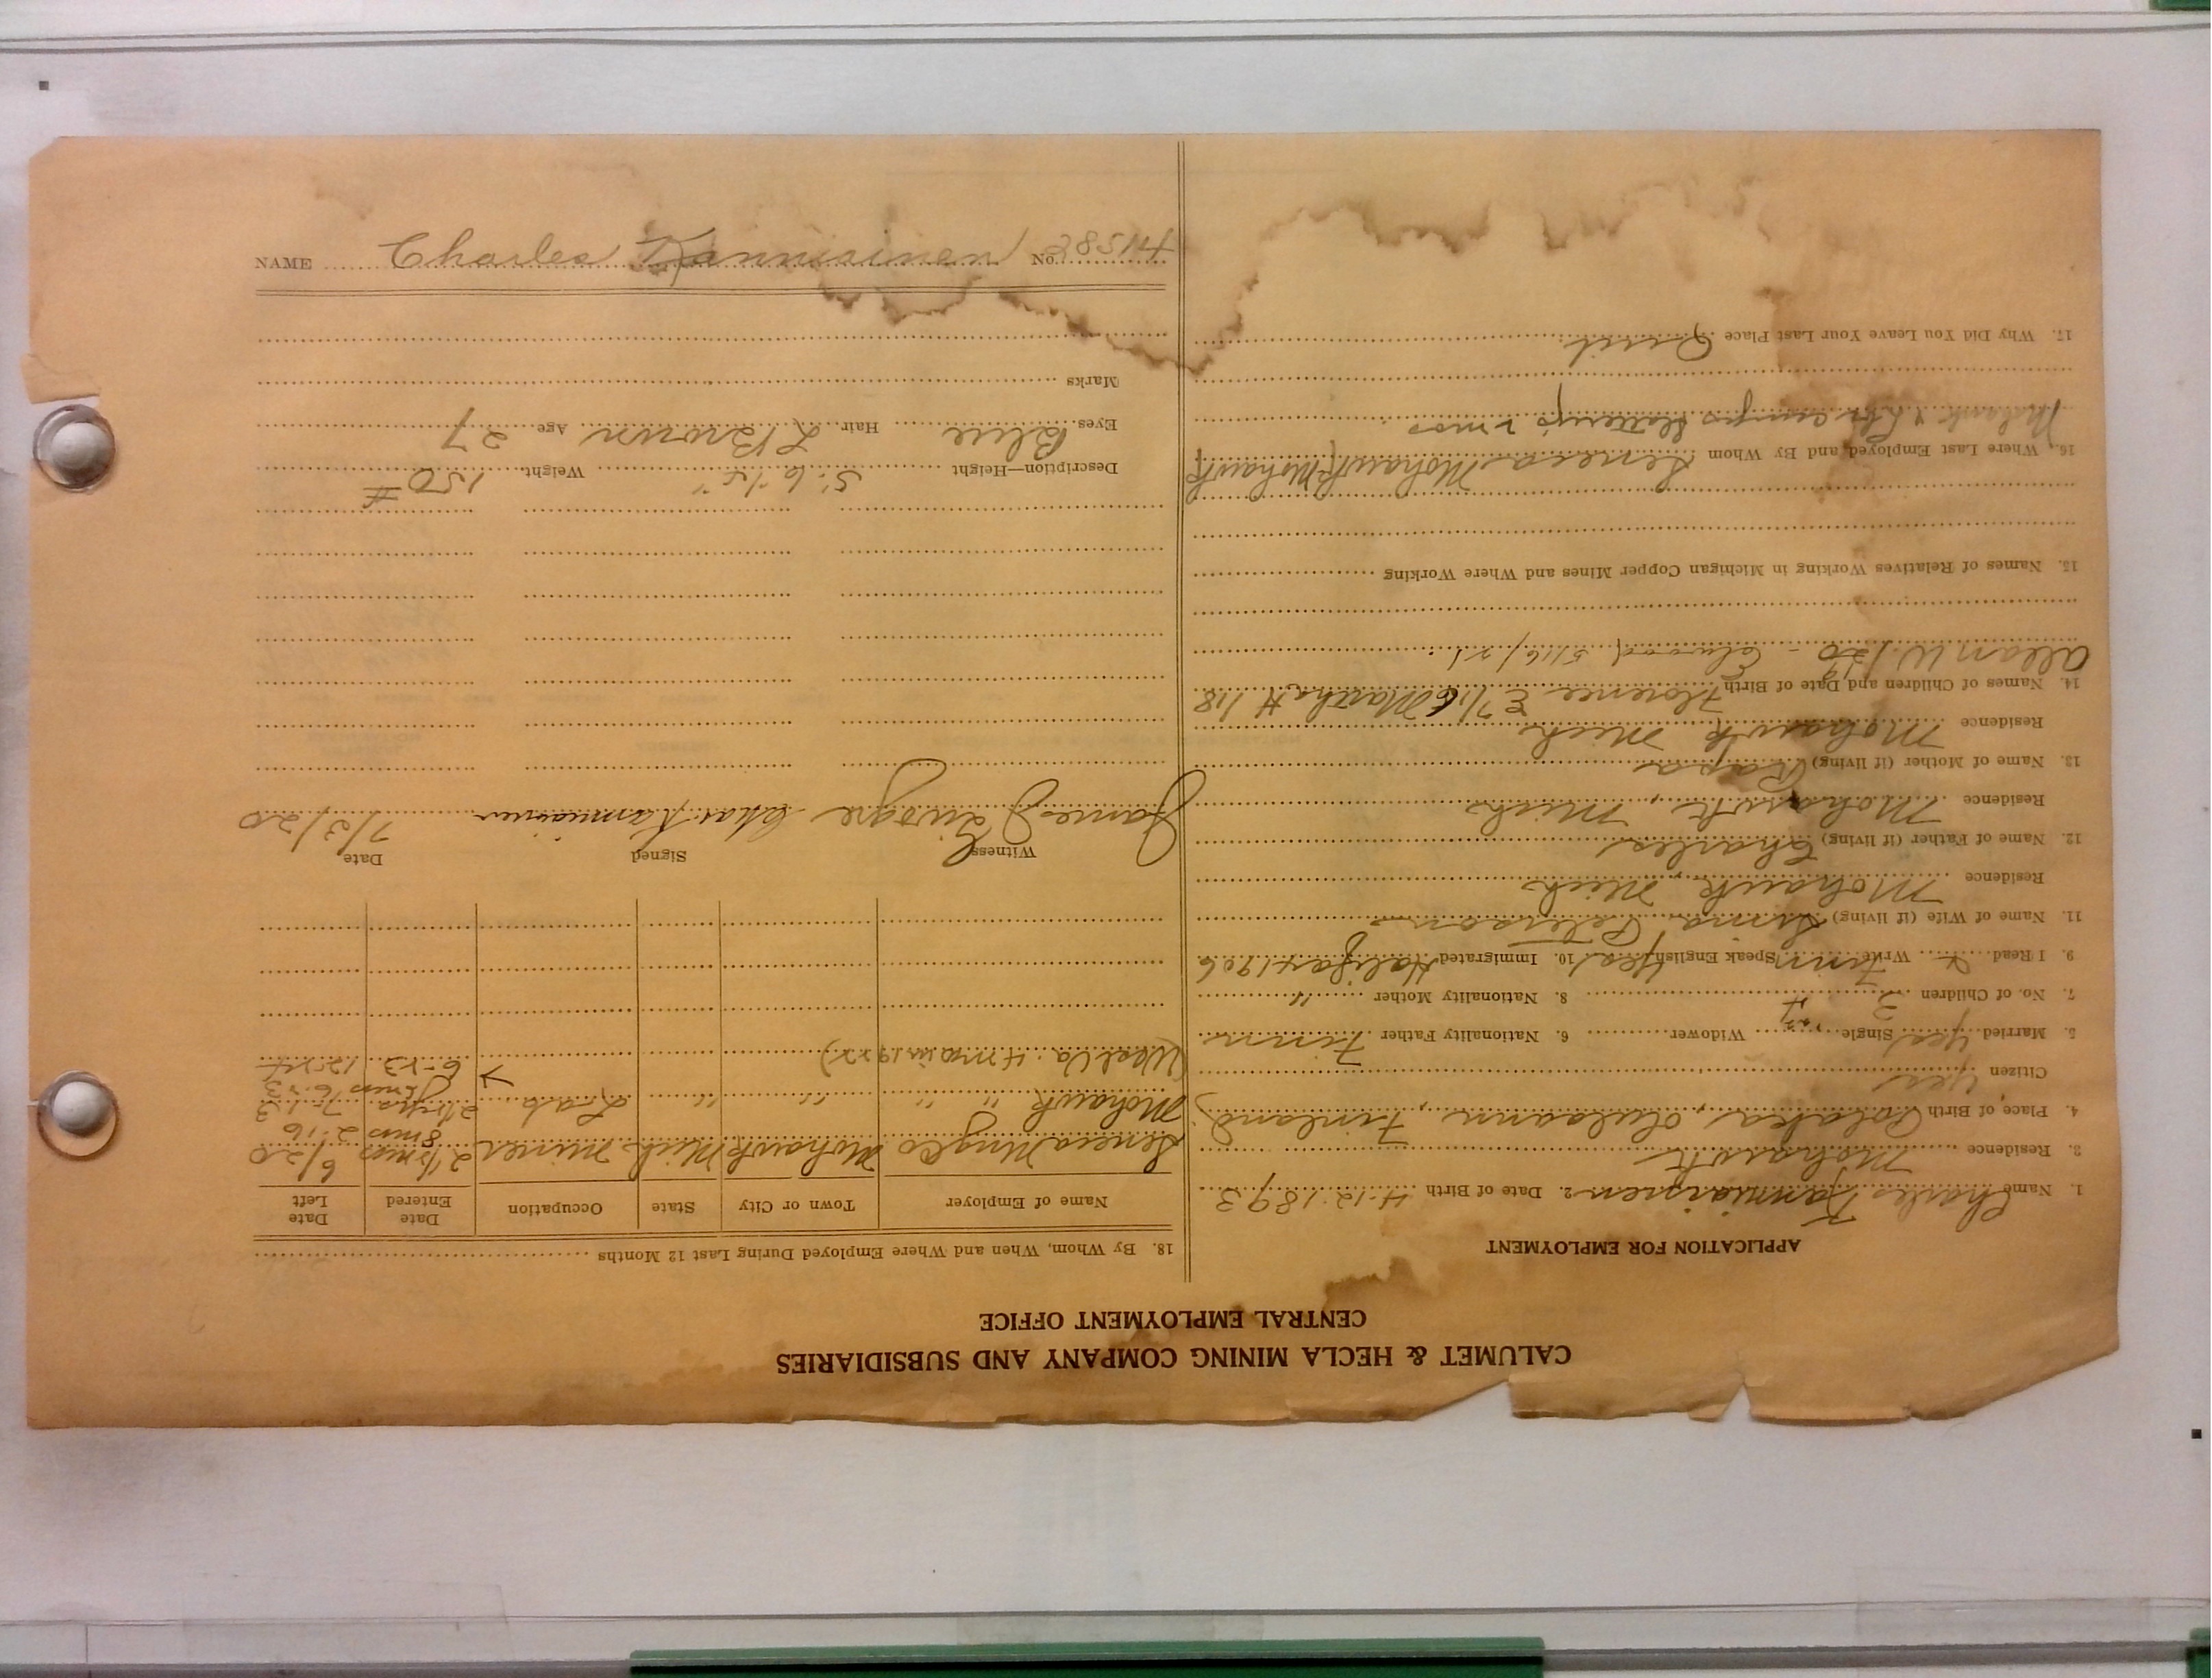 CALUMET & HECLA MINING COMPANY AND SUBSIDIARIES
CENTRAL EMPLOYMENT OFFICE
APPLICATION FOR EMPLOYMENT
1. Name Charles Kanniainen 2. Date of Birth 4-12-1893
3. Residence Mohawk
4. Place of Birth Finland
Citizen Yes
5. Married Yes Single Widower 6. Nationality Father Finn
7. No. of Children 3 4 8. Nationality Mother "
9. I Read Write Finn Speak English Yes 10. Immigrated Halifax 1906
11. Name of Wife (if living) Peterson
Residence Mohawk, Mich
12. Name of Father (if living) Charles
Residence Mohawk, Mich
13. Name of Mother (if living)
Residence Mohawk Mich
14. Names of Children and Date of Birth Florence E Martha H /18
Allan W. /20 - 5/16/21
15. Names of Relatives Working in Michigan Copper Mines and Where Working
16. Where Last Employed and By Whom Seneca Mohawk Mohawk
17. Why Did You Leave Your Last Place Quit
18. By Whom, When and Where Employed During Last 12 Months
Name of Employer Town or City State Occupation Date Entered Date Left
Seneca Mng Co Mohawk Mich Miner 2 1/2 mos 6/20
8 mos 2-16
Mohawk " " " " Lab
(West Va. 4 mo in 1922) 6-23 12-24
Witness Signed Date
James Chas. Kanniainen 7/3/20
Description—Height 5' 6 Weight 150 #
Eyes Blue Hair L Brown Age 27
Marks
NAME Charles Kanniainen No.